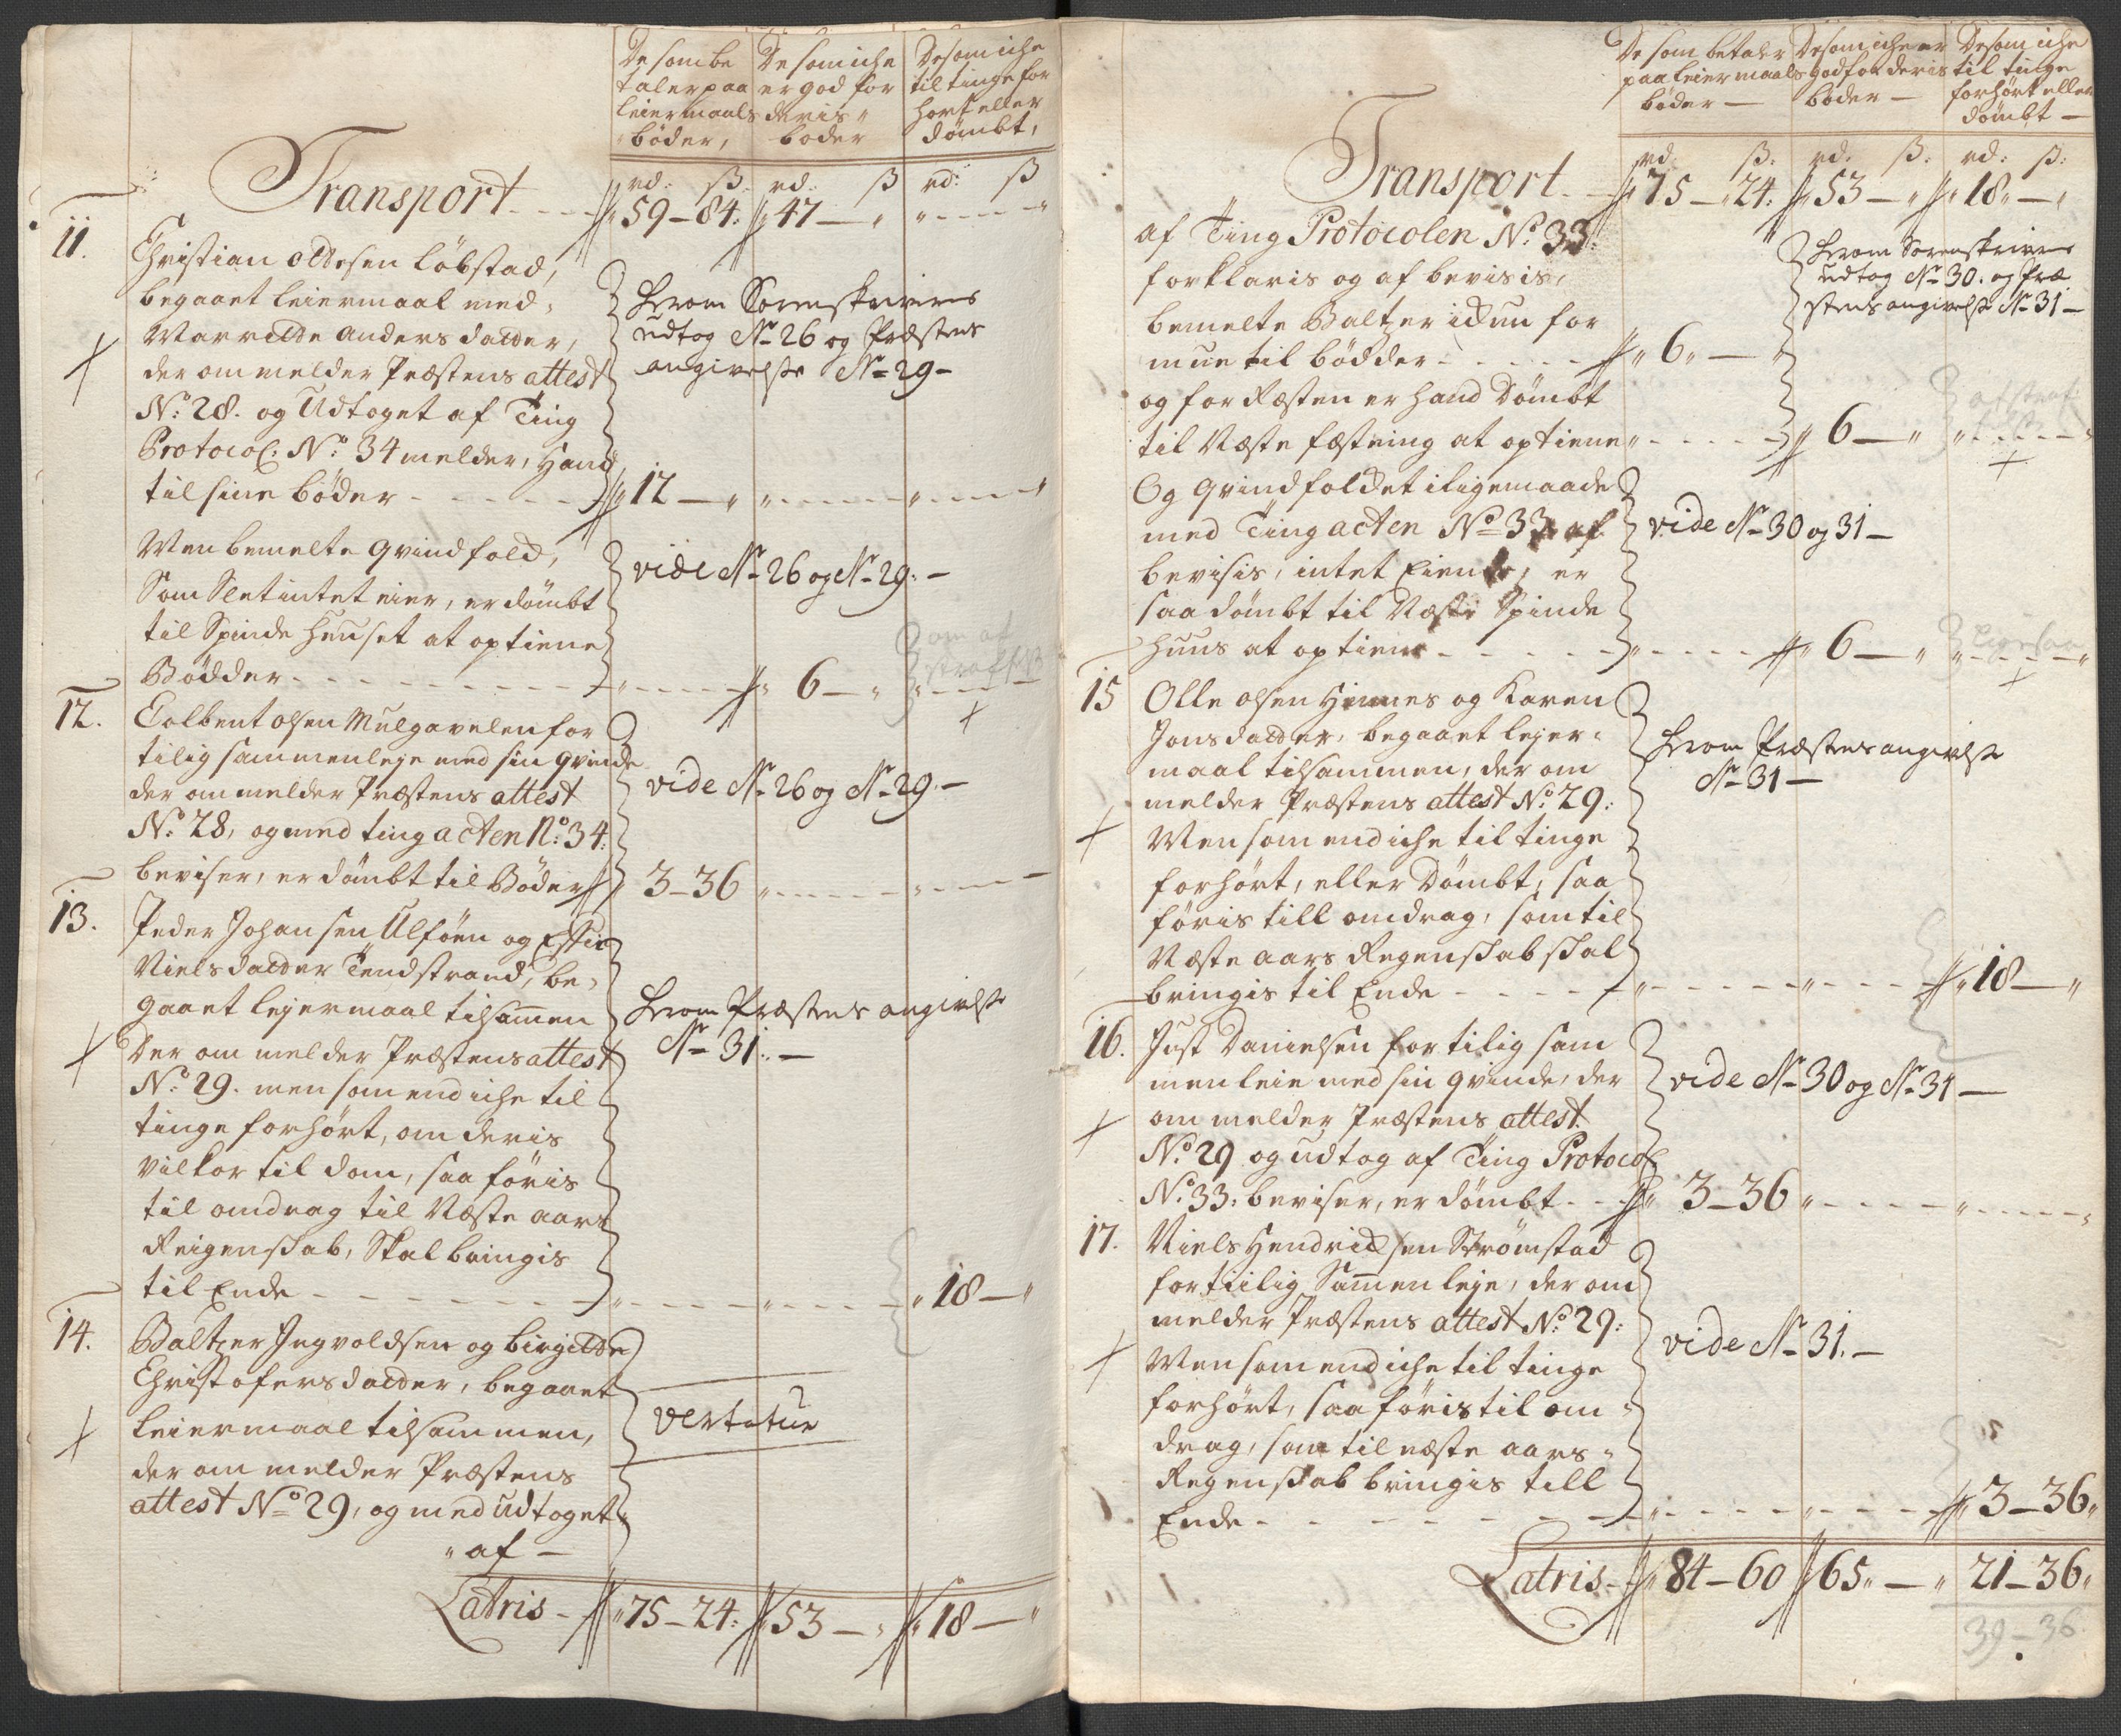 De som be
taler paa
leiermaals
bøder,
De som iche
er god for
deris
bøder
De som iche
til tinge for
hørt eller
dømbt,
rd: ß. rd: ß rd: ß
Transport - - - 59 - 84: 47 - " " - - - "
11.
Christian Ottesen Løbstad,
begaaet leiermaal med
Marrette Anders datter,
der om melder Præstens attest
No: 28. og Udtoget af Ting
Protocol: No: 34 melder, Hand
til sine bøder - - - - - 12 - "
Herom Sorenskriverens
udtog No 26 og Præstens
angivelse No 29 -
Men bemelte qvindfold,
Som Slet intet eier, er dømbt
til Spinde Huuset at optiene
Bødder - - - - - - - - 6 - "
vide No 26 og No 29. -
om af
straffet
12.
Tolbent Olsen Mulgavelen for
tilig sammenleje med sin qvinde
der om melder Præstens attest
No: 28, og med ting acten No: 34:
beviser, er dømbt til Bøder 3 - 36
vide No 26 og No 29. -
13.
Peder Johansen Ulføen og
Niels datter Tendstrand, be-
gaaet lejermaal tilsamen
Der om melder Præstens attest
No: 29. men som end iche til
tinge forhørt, om deris
vilkor til dom, saa føris
til omdrag til Næste aars
Reigenskab, Skal bringis
til Ende - - - - - - - " 18 - "
Herom Præstens angivelse
No 31. -
14.
Baltzer Ingvoldsen og Birgitte
Christofersdatter, begaaet
leiermaal tilsammen,
der om melder Præstens
attest No 29, og med udtoget
" af -
vertatur
Latris - " 75 - 24: 53 - " 18 - "
De som betaler
paa leiermaals
bøder -
De som iche er
god for deris
bøder -
De som iche
til tinge
forhørt eller
dømbt -
rd. ß: rd. ß. rd: ß:
Transport - - " 75 - 24: " 53 - " " 18 - "
af Ting Protocolen No: 33:
forklaris og af bevisis,
bemelte Baltzer ickun for
mue til bødder - - - - - " 6 " - "
Herom Sorenskriverens
udtog No 30. og Præ
stens angivelse No 31 -
og for Resten er hand Dømbt
til Næste fæstning at optiene " - - - - 6 - " " - - - -
afstraf:
Og qvindfoldet iligemaade
med Ting acten No 33 af
bevisis, intet Eiende, er
saa dømbt til Næste Spinde
Huus at optiene - - - - - " - - - - 6 - " " - - - "
vide No 30 og 31 -
Ligesaa
15
Olle Olsen Hinnes og Karen
Jonsdatter, begaaet lejer-
maal tilsammen, der om
melder Præstens attest No: 29:
Men som end iche til tinge
forhørt, eller Dømbt, saa
føris till omdrag, som til
Næste aars Regenskab skal
bringis til Ende - - - - - " 18 - "
Herom Præstens angivelse
No 31 -
16.
Just Danielsen for tilig sam
menleie med sin qvinde, der
om melder Præstens attest
No: 29 og udtog af Ting Protocol
No: 33: beviser, er dømbt - - " 3 - 36 " - - - - " - - - - "
vide No 30 og No 31 -
17.
Niels Hendricksen Strømstad
for tiilig Samenleje, der om
melder Præstens attest No: 29:
Men som end iche til tinge
forhørt, saa føris til om-
drag, som til næste aars
Regenskab bringis till
Ende - - - - - - - - - - " 3 - 36 "
vide No 31. -
Latris - " 84 - 60 " 65 " - " 21 - 36 "
39 - 36.